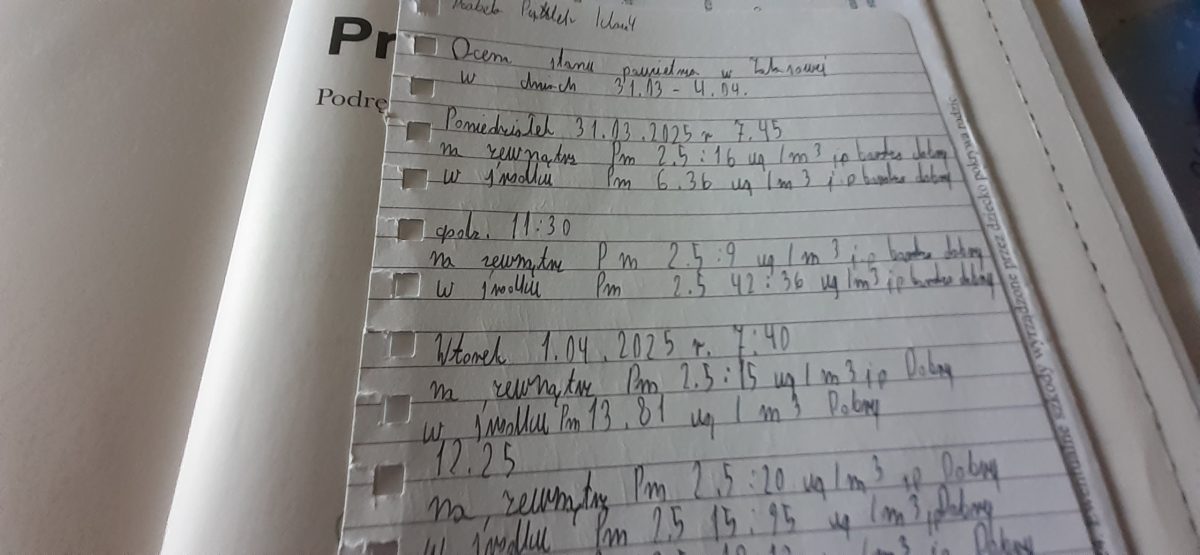 Ocena stanu powietrza w
w dniach 31.03 - 4.04.
Poniedziałek 31.03.2025 r. 7.45
na zewnątrz Pm 2.5 : 16 ug / m³ i p bardzo dobry
w środku Pm 6.36 ug / m³ i p bardzo dobry
godz. 11:30
na zewnątrz Pm 2.5 : 9 ug / m³ i p bardzo dobry
w środku Pm 2.5 42 : 36 ug / m³ i p bardzo dobry
Wtorek 1.04.2025 r. 7:40
na zewnątrz Pm 2.5 : 15 ug / m³ i p Dobry
w środku Pm 13.81 ug / m³ Dobry
12.25
na zewnątrz Pm 2.5 : 20 ug / m³ i p Dobry
w środku Pm 2.5 15 : 95 ug / m³ i p Dobry
Pr
Podrę
wyrządzone przez dziecko pokrywa